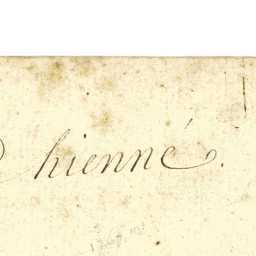 hienné.